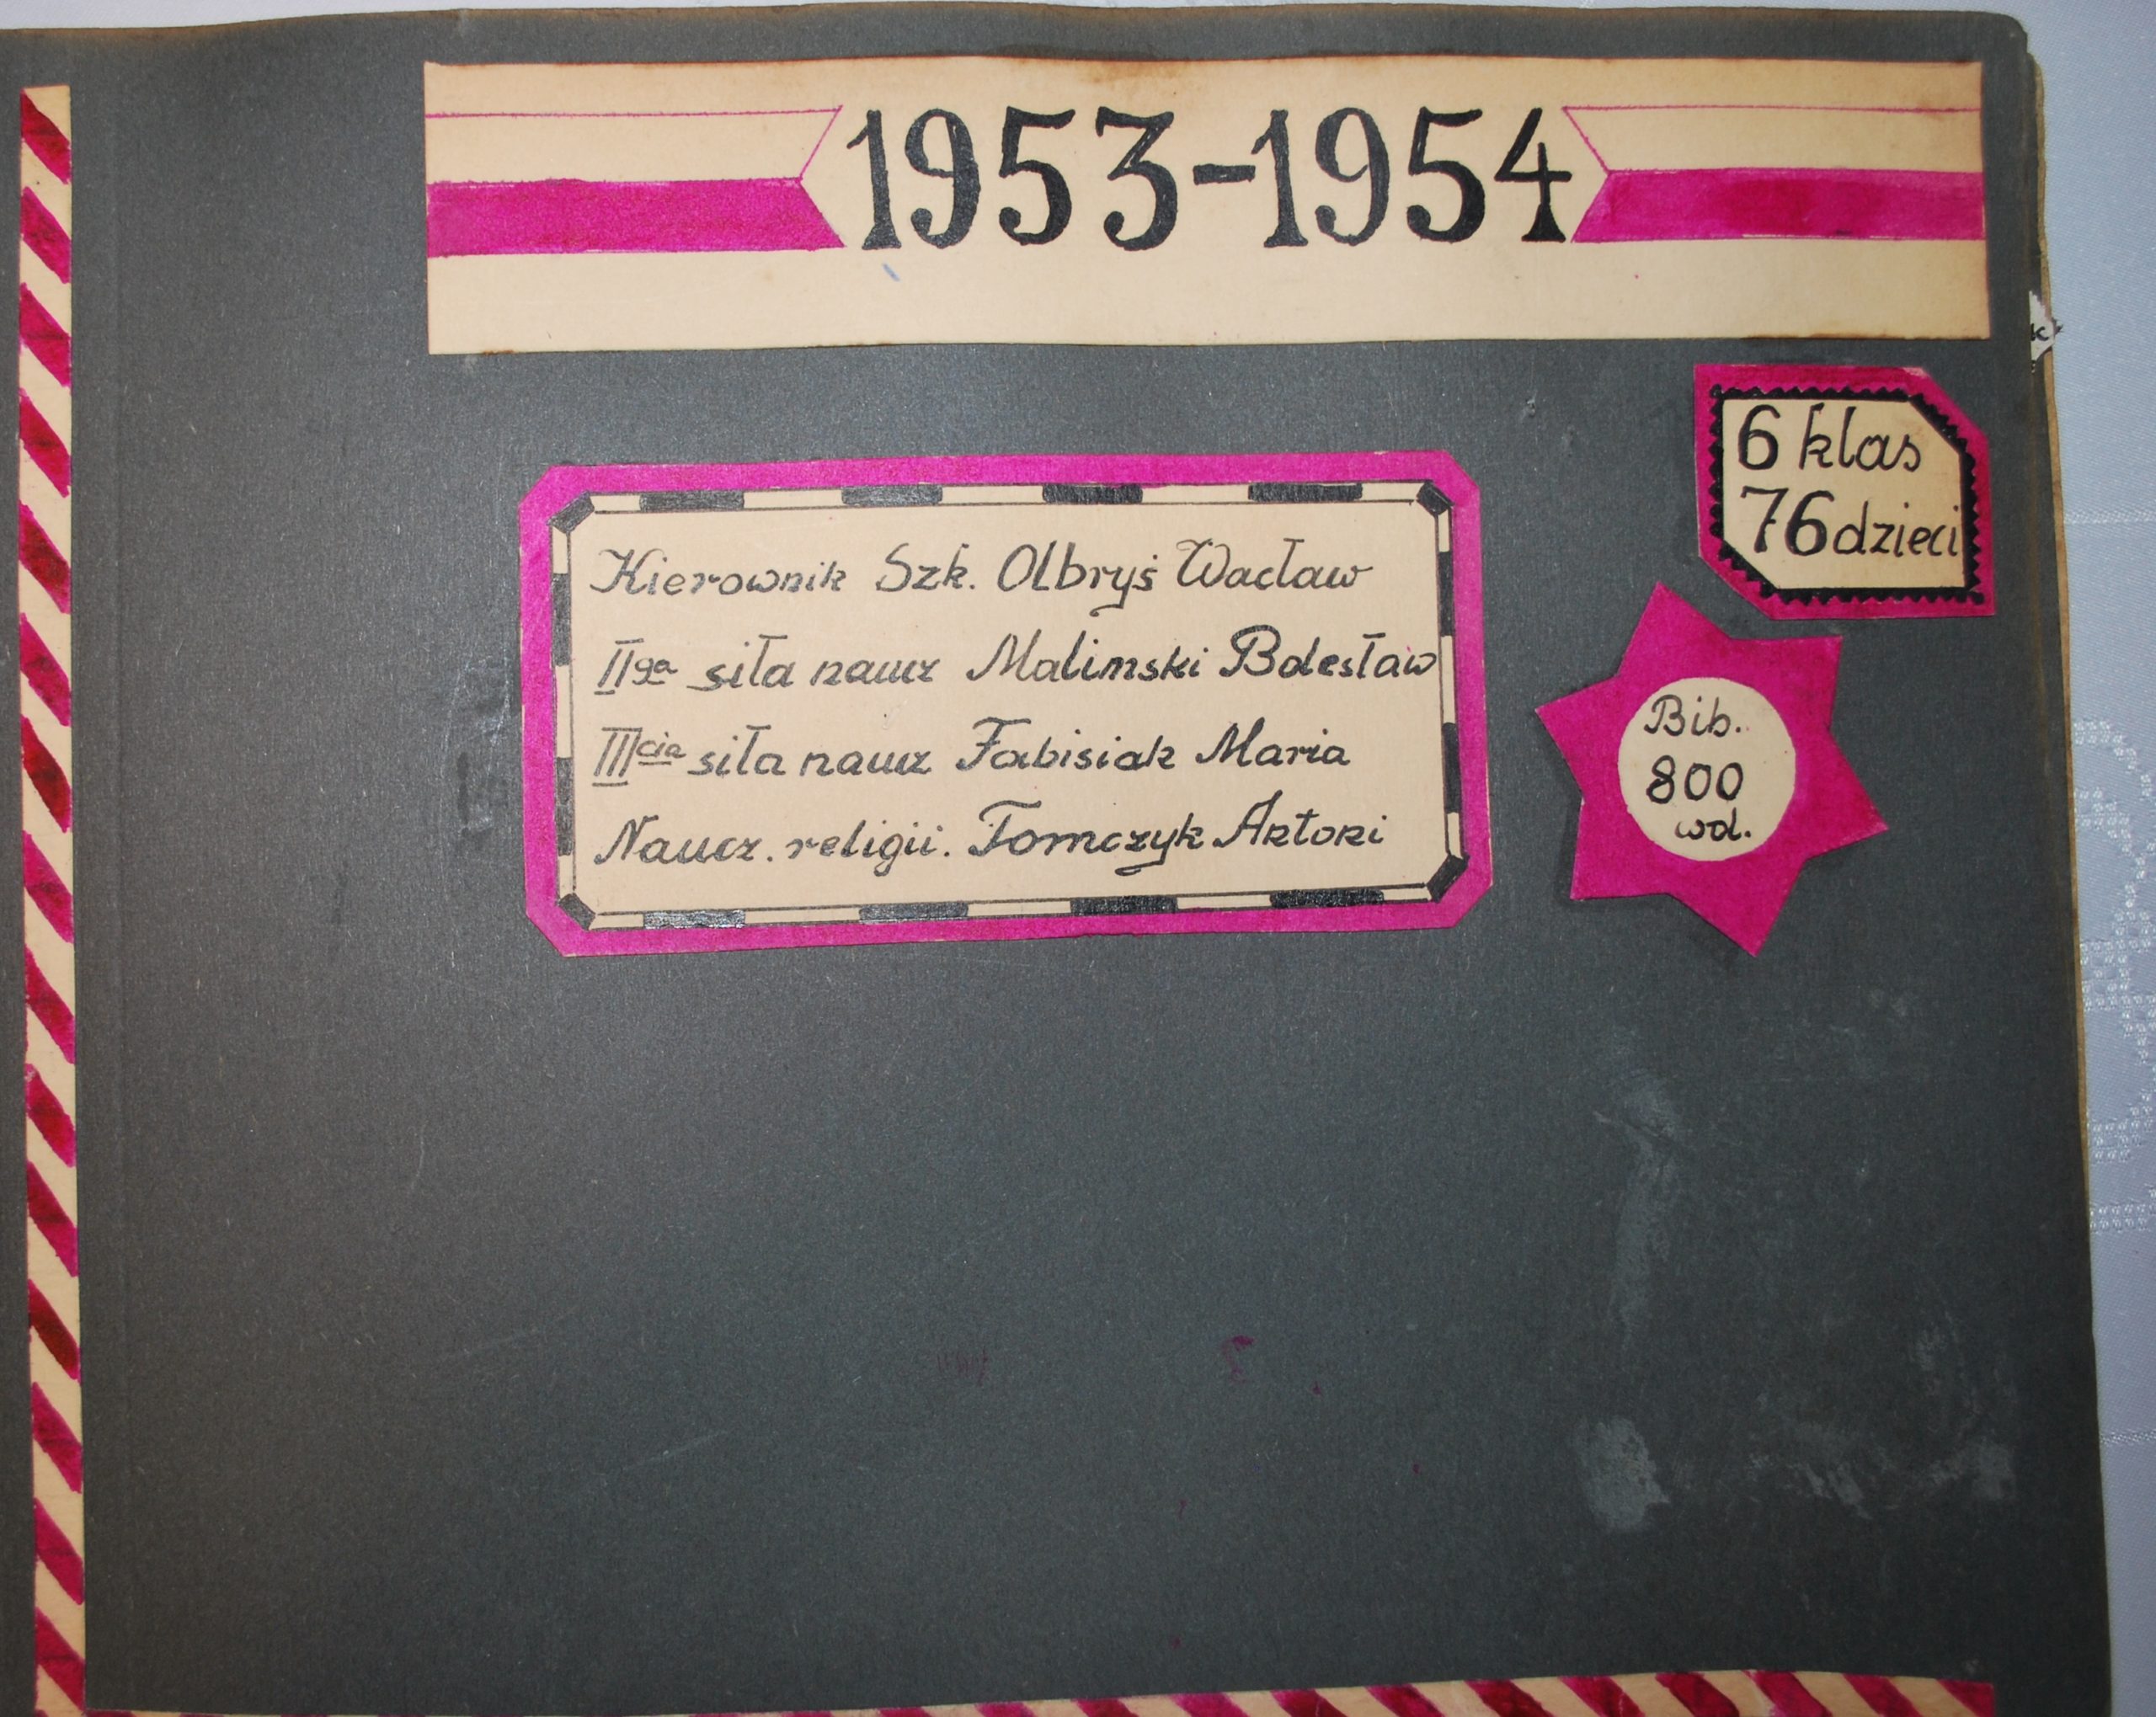 1953-1954
6 klas
76 dzieci
Kierownik Szk. Olbryś Wacław
IIga siła naucz Malinski Bolesław
IIIcia siła naucz Fabisiak Maria
Naucz. religii. Tomczyk Antoni
Bib.
800
wol.